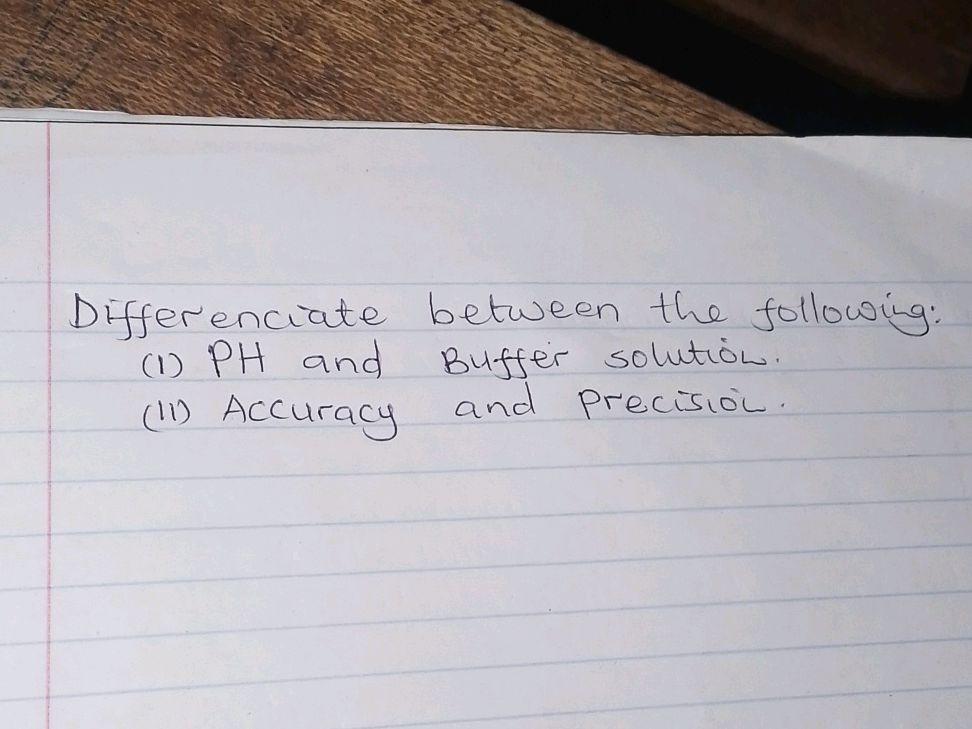 Differenciate between the following:
(I) PH and Buffer solution.
(II) Accuracy and precision.